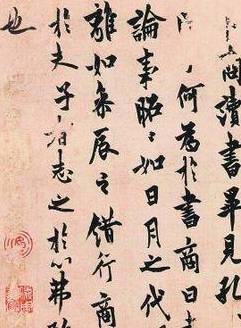 商讀書畢見孔
何為於書商曰
論事昭〻如日月之代
離如參辰之錯行商
於夫子者志之於心弗
也